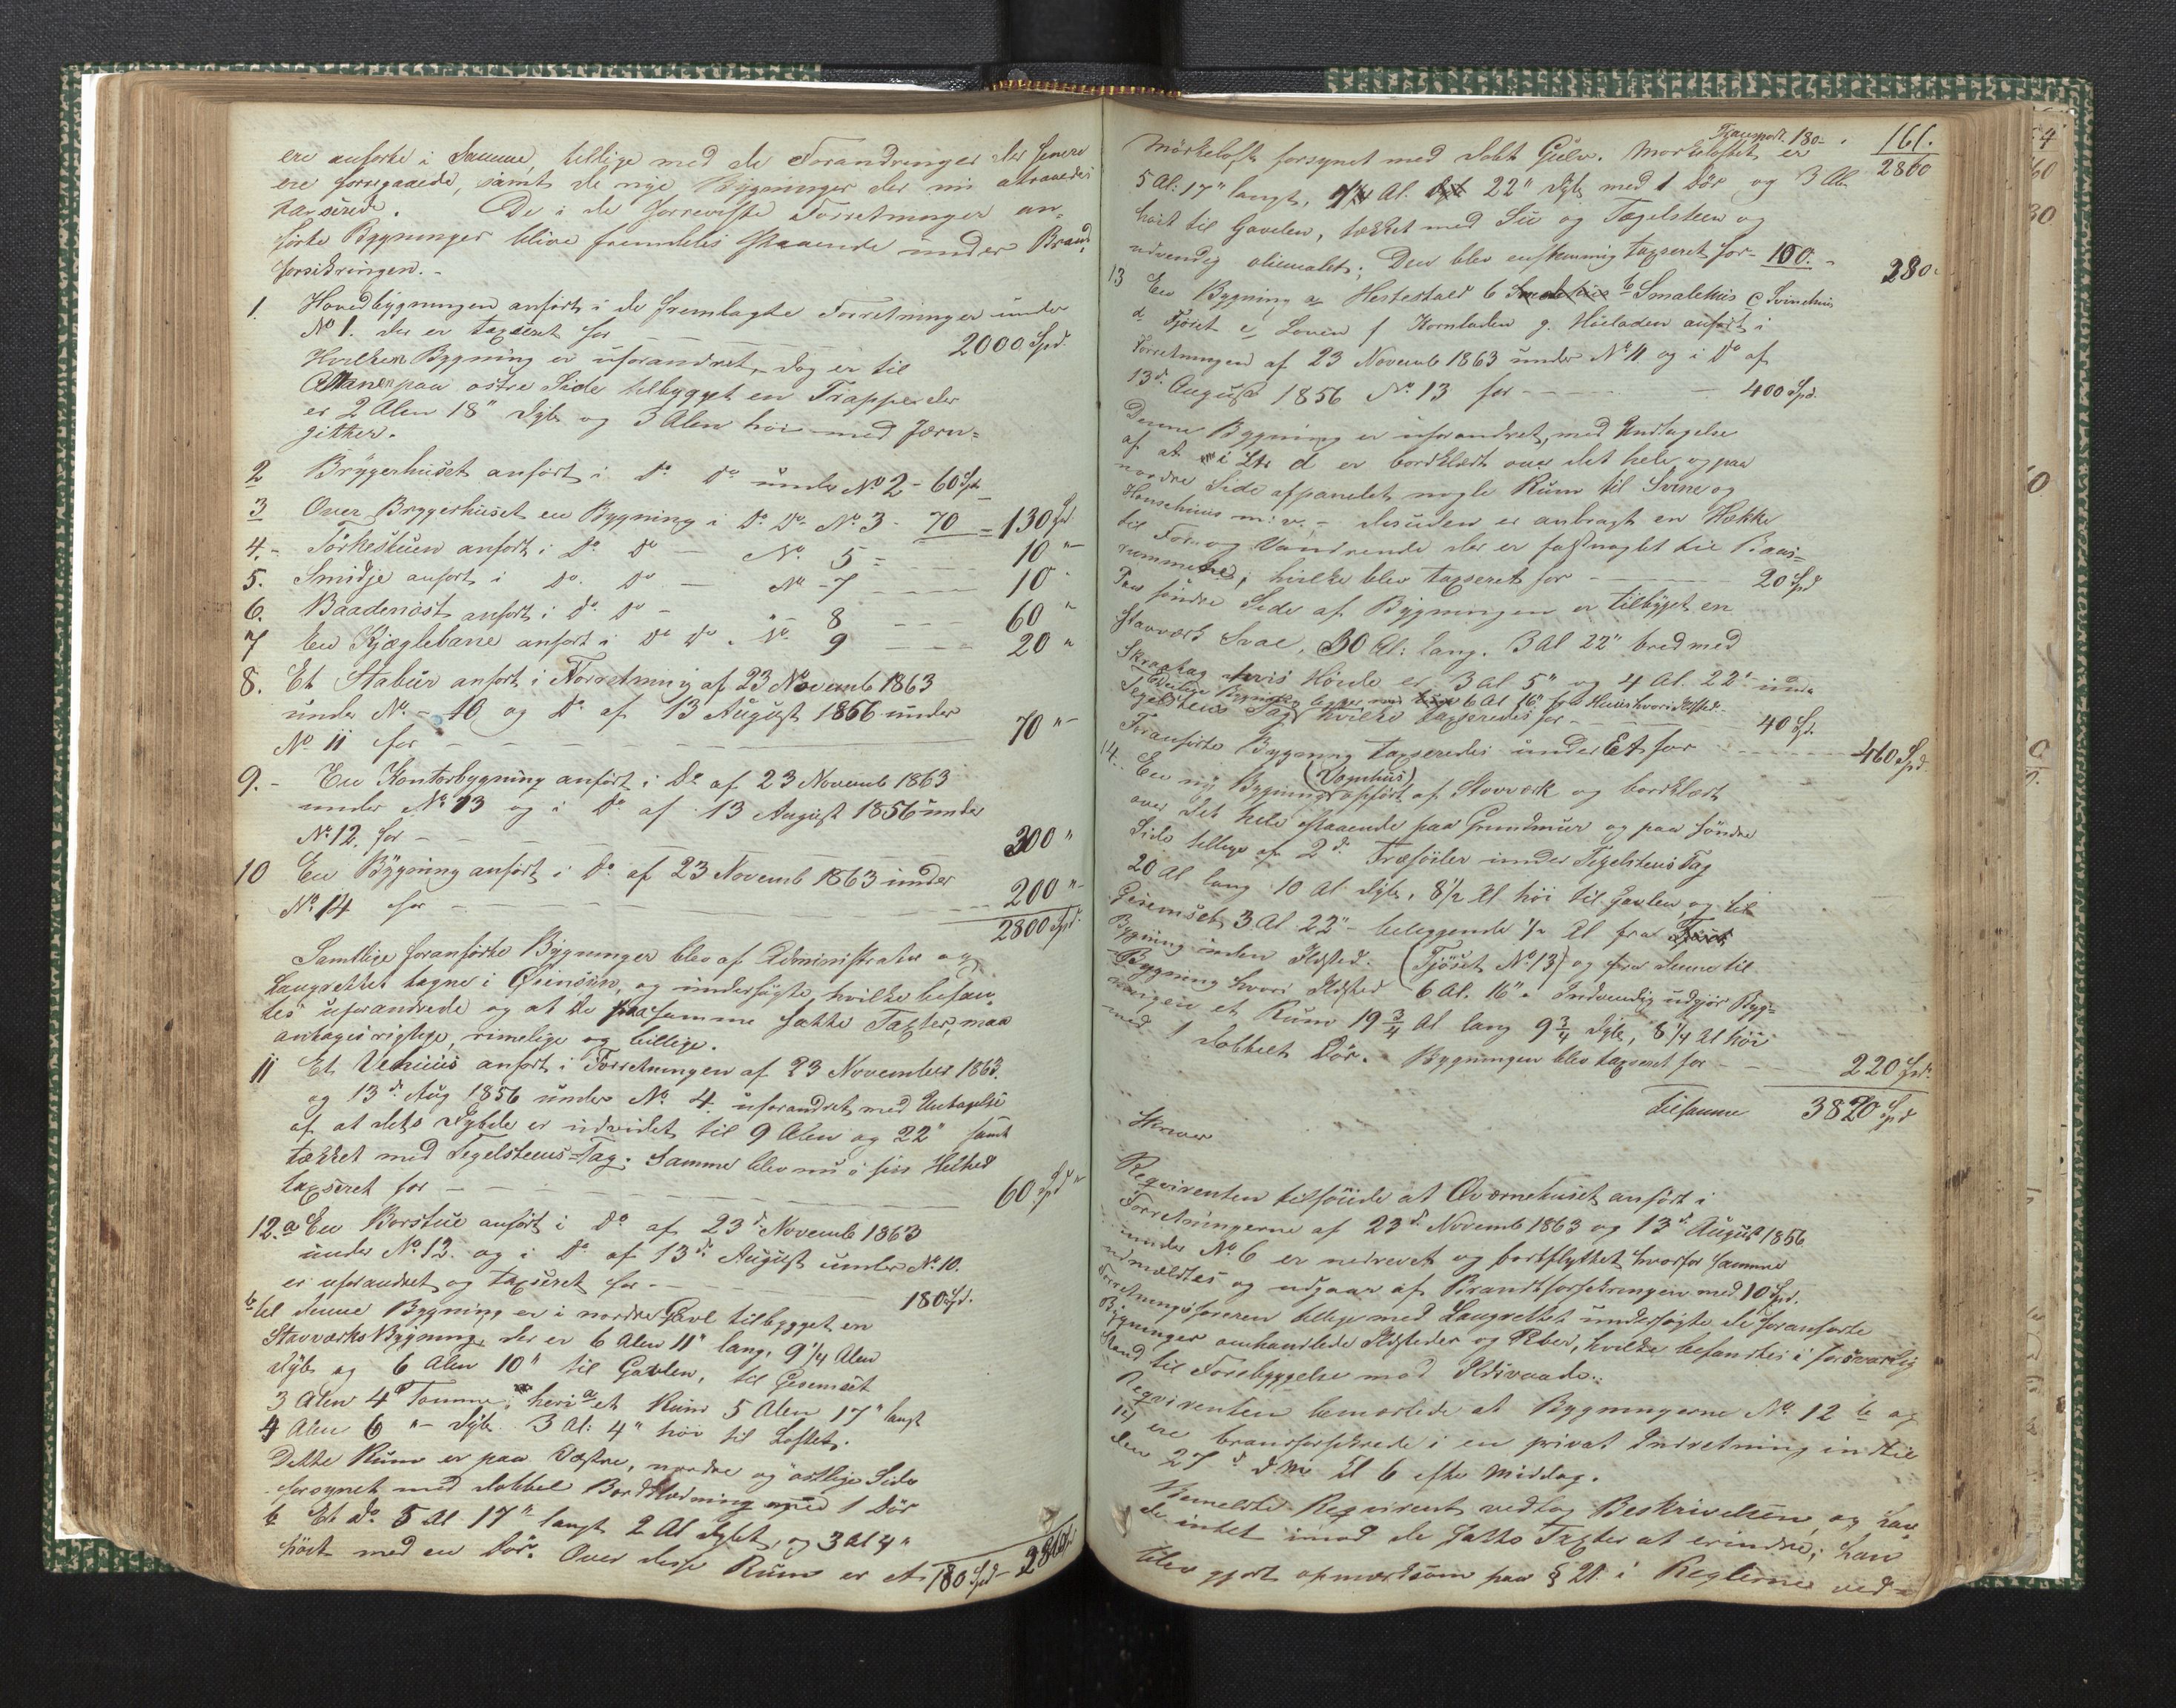 ere anførte i Samme, tillige med de Forandringer der senere
ere foregaaede, samt de nye Bygninger der nu
taxserede. De i de forreviste Forretninger an-
førte Bygninger blive fremdeles staaende under Brand-
forsikringen.-
1. Hovedbygningen anført i de fremlagte Forretninger under
No 1. der er taxseret for 2000 Spd.
Hvilken Bygning er uforandret, dog er til
Altanen paa østre Side tilbygget en Trappe der
er 2 Alen 18" Dyb og 3 Alen høi med Jern-
gitter.
2 Bryggerhuset anført i Do Do under No 2 - 60 Spd
3 Over Bryggerhuset en Bygning i Do Do No 3 - 70 = 130 Spd
4.- Tørkestuen anført i Do Do - No 5 - 10 "
5. Smidje anført i Do. Do - No - 7 - 10 "
6. Baadenøst anført i Do Do - " - 8 - 60 "
7 En Kjæglebane anført i Do Do . No. 9 - 20 "
8. Et Stabur anført i Forretning af 23 Novemb 1863
under No - 10 og Do af 13 August 1856 under
No 11 for - 70 "
9.- En Kontorbygning anført i Do af 23 Novemb 1863
under No 13 og i Do af 13 August 1856 under
No 12. for - 300 "
10 En Bygning anført i Do af 23 Novemb 1863 under
No 14 for - 200 "
2800 Spd.
Samtlige foranførte Bygninger blev af Administrator og
Laugrettet tagne i Øiensyn, og undersøgte, hvilke befan-
tes uforandrede og at de paa samme satte Taxter, maa
antages rigtige, rimelige og billige.
11 Et Vehuus anført i Forretningen af 23 November 1863.
og 13de Aug 1856 under No 4. uforandret med Untagelse
af at dets Dybde er udvidet til 9 Alen og 22" samt
tækket med Tegelsteens-Tag. Samme blev nu i sin Helhed
taxseret for - 60 Spd "
12.a En Borstue anført i Do af 23de Novemb 1863
under No 12. og i Do af 13de August under No 10.
er uforandret og taxseret for - 180 Spd.
b til denne Bygning er i nordre Gavl tilbygget en
Stavværks Bygning, der er 6 Alen 11" lang, 9 1/4 Alen
Dyb og 6 Alen 10" til Gavlen, til Gesemset
3 Alen 4 Tomme; heri a et Rum 5 Alen 17" langt
4 Alen 6 "- Dyb. 3 Al: 4" høi til Loftet.
Dette Rum er paa Vestre, nordre og østlige Side
forsynet med dobbel Bordklædning med 1 Dør
b Et Do. 5 Al 17" langt 2 Al dybt, og 3 Al 4"
høit med en Dør. Over disse Rum er et 180 Spd - 2860
Transport. 180 - 161.
Mörkeloft forsynet med dobt Gulv. Mörkeloftet er 2800
5 Al: 17" langt, Al. 22" Dyb med 1 Dør og 3 Al.
høit til Gavelen, tækket med Su og Tægelsteen og
udvendig oliemalet; Den blev enstemmig taxseret for - 100. - 280
13 En Bygning a Hestestald b Smalehuus b Smalehuus c Svinehuus
d Fjöset e Loven f Kornladen g. Höeladen anført i
Forretningen af 23 Novemb 1863 under No 11 og i Do af
13de August 1856 No 13 for - - - 400 Spd.
Denne Bygning er uforandret, med Undtagelse
af at i Ltr d er bordklædt over det hele og paa
nordre Side afpanelet nogle Rum til Sviin og
Hønsehuus m: v. - desuden er anbragt en Hække
til Foer og Vandrende der er fastnaglet til Baas-
rummene; hvilke blev taxseret for - 20 Spd
Paa søndre Side af Bygningen er tilbyget en
Stavværk Sval, 30 Al: lang. 3 Al 22" bred med
Skraatag hvis Höide er 3 Al 5" og 4 Al. 22" under
Bygning ligger 6 Al 16" fra Huus hvori Ildsted.
Tegelsteens Tag hvilke taxseredes for - 40 Spd.
Foranførte Bygning taxseredes under Et for - 460 Spd.
14. En ny Bygning (Vognhuus) opført af Stavværk og bordklædt
over det hele staaende paa Grundmuur og paa søndre
Side tillige af 2de Træsöiler under Tegelsteens Tag
20 Al lang 10 Al Dyb, 8 1/2 Al høi til Gavlen, og til
Gesemset, 3 Al 22" - beleggende 1/2 Al fra
Bygning inden Ildsted. (Fjöset No 13) og fra denne til
Bygning hvori Ildsted 6 Al. 16". Indvendig udgjör Byg-
ningen et Rum 19 3/4 Al lang 9 3/4 Dyb, 8 1/4 Al høi
med 1 dobbelt Dør. Bygningen blev taxseret for - 220 Spd.
Tilsamme 3820 Spd
Reqvirenten tilføiede at Qværnehuset anført i
Forretningerne af 23de Novemb 1863 og 13de August 1856
under No 6 er nedrevet og bortflyttet hvorfor samme
udmeldtes og udgaar af Brandtforsikringen med 10 Spd.
Forretningsføreren tillige med Laugrettet undersøgte de foranførte
Bygninger omhandlede Ildsteder og Piber, hvilke befandtes i forsvarlig
Stand til Forebyggelse mod Ildsvaade.:
Reqvirenten bemærkede at Bygningerne No 12 b og
14 ere brandforsikrede i en privat Indretning indtil
den 27de d. M. Kl 6 efter Middag.
Bemeldte Reqvirent vedtog Beskrivelsen, og hav-
de intet imod de satte Taxter at erindre; han
blev gjort opmærksom paa § 21 i Reglerne ved-